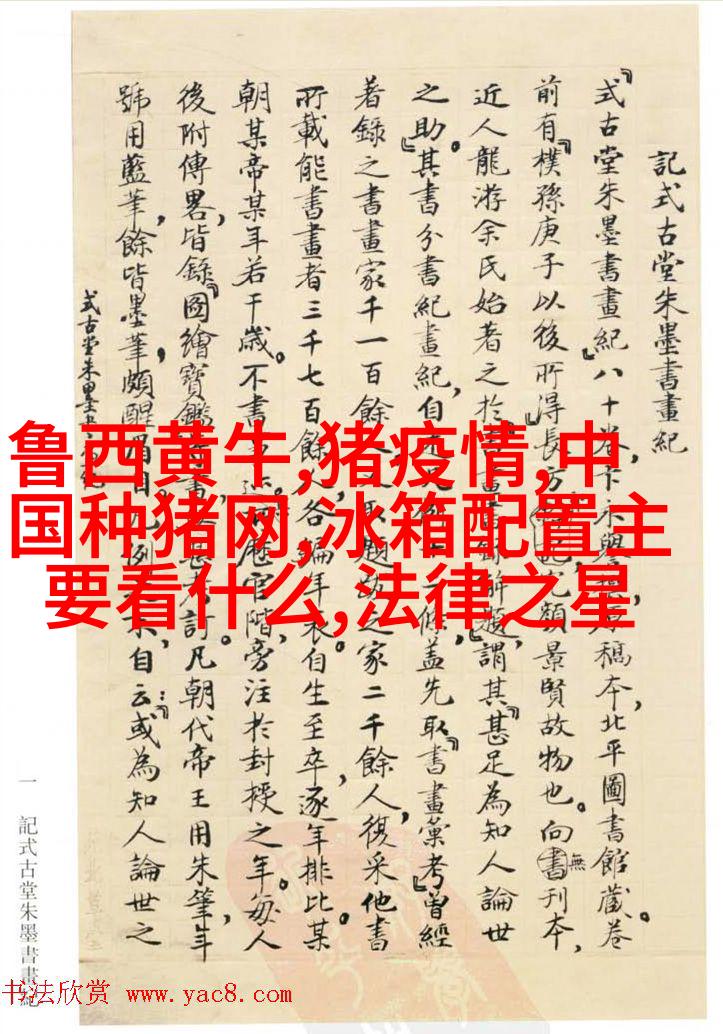 記式古堂朱墨書畫紀
『式古堂朱墨書畫紀』八十卷，卞永譽
稿本，北平圖書館藏。卷
前有『樸孫庚子以後所得』長方
元顏景賢故物也。向無刊本，
近人龍游余氏始著之於
謂其『甚足為知人論世
之助』。其書分書紀畫紀，自
條，蓋先取『書畫彙考』曾經
著錄之書畫家千一百餘人
之家二千餘人，復采他書
所載能書畫者三千七百餘人，各編年表。自生至卒，逐年排比某
朝某帝某年若干歲。不書
官階，旁注於封授之年。每人
後附傳畧，皆錄『圖繪寶鑑
訂。凡朝代帝王用朱筆，年
號用藍筆，餘皆墨筆，頗醒眉目。
例
自云：『或為知人論世之
式古堂朱墨書畫紀
一
記式古堂朱墨書畫紀
鲁西黄牛,猪疫情,中
国种猪网,冰箱配置主
要看什么,法律之星
书法欣赏 www.yac8.com